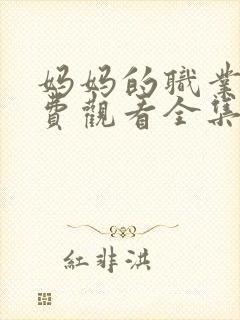 妈妈的職業
費觀看全集
紅非洪